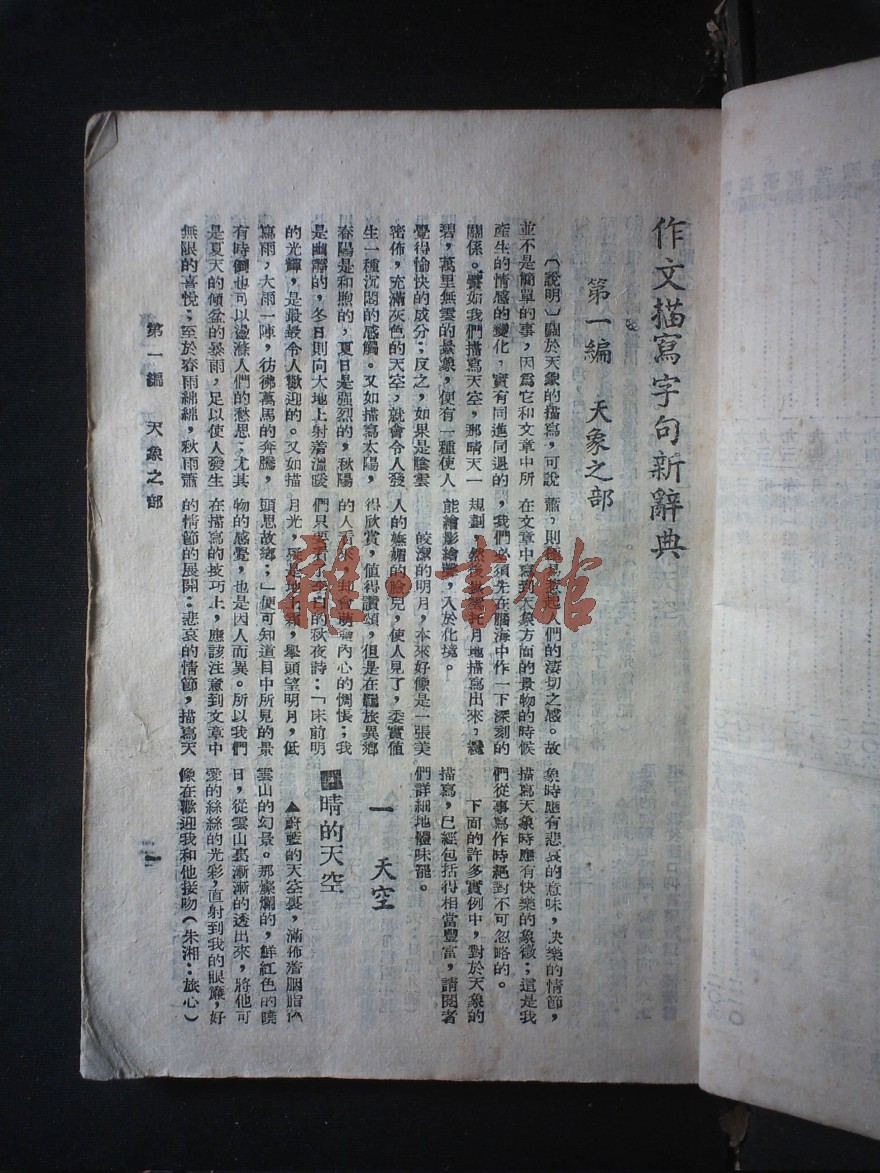 作文描寫字句新辭典
第一編　天象之部
（說明）關於天象的描寫，可說
並不是簡單的事，因爲它和文章中所
產生的情感的變化，實有同進同退的
關係。譬如我們描寫天空，那晴天一
碧，萬里無雲的景象，便有一種使人
覺得愉快的成分；反之，如果是陰雲
密佈，充滿灰色的天空，就會令人發
生一種沉悶的感觸。又如描寫太陽，
春陽是和煦的，夏日是强烈的，秋陽
是幽靜的，冬日則向大地上射着溫暖
的光輝，是最最令人歡迎的。又如描
寫雨，大雨一陣，彷彿萬馬的奔騰，
有時倒也可以盪滌人們的愁思；尤其
是夏天的傾盆的暴雨，足以使人發生
無限的喜悅；至於春雨綿綿，秋雨蕭
蕭，則極易惹起人們的淒切之感。故
在文章中寫到天象方面的景物的時候
，我們必須先在腦海中作一下深刻的
規劃，然後烘雲托月地描寫出來，纔
能繪影繪聲，入於化境。
皎潔的明月，本來好像是一張美
人的嫵媚的臉兒，使人見了，委實值
得欣賞，值得讚頌，但是在羈旅異鄉
的人看來，却會萌起內心的惆悵；我
們只要看了李白的秋夜詩：「床前明
月光，疑是地上霜，舉頭望明月，低
頭思故鄉；」便可知道目中所見的景
物的感覺，也是因人而異。所以我們
在描寫的技巧上，應該注意到文章中
的情節的展開：悲哀的情節，描寫天
象時應有悲哀的意味，快樂的情節，
描寫天象時應有快樂的象徵；這是我
們從事寫作時絕對不可忽略的。
下面的許多實例中，對於天象的
描寫，已經包括得相當豐富，請閱者
們詳細地體味罷。
一　天空
晴的天空
▲蔚藍的天空裏，滿佈着胭脂的
雲山的幻景。那燦爛的，鮮紅色的曉
日，從雲山裏漸漸的透出來，將他可
愛的絲絲的光彩，直射到我的眼簾，好
像在歡迎我和他接吻（朱湘：旅心）
第一編　天象之部
一
雜·書館